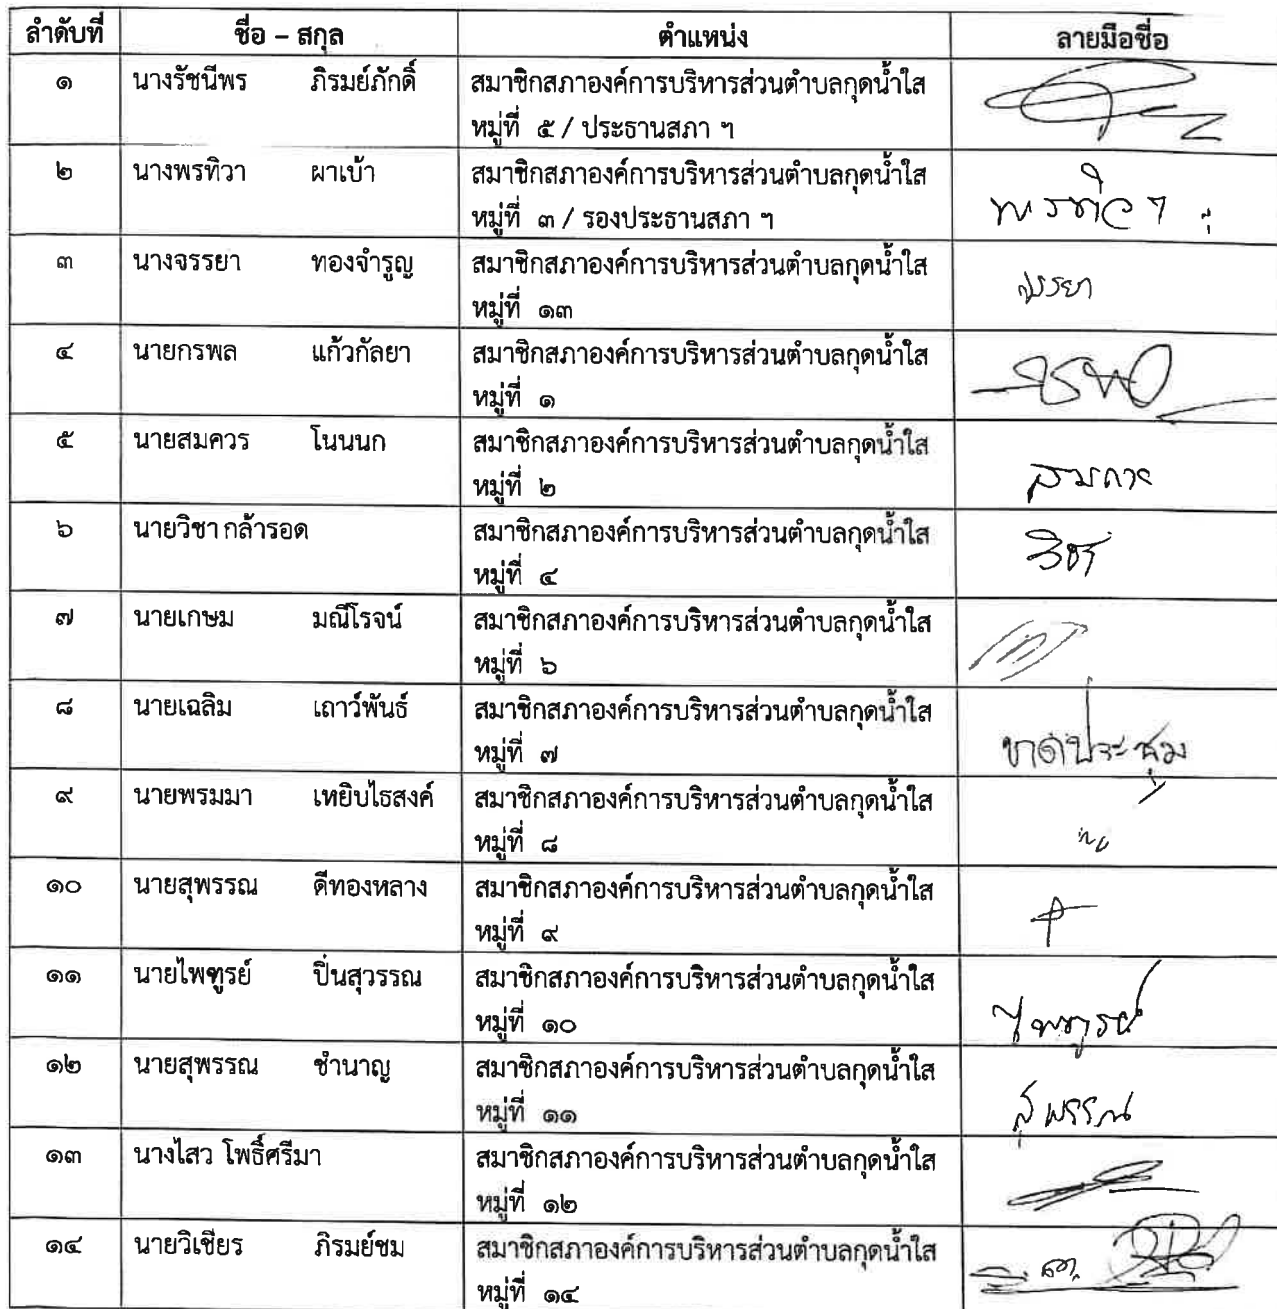 ลำดับที่ ชื่อ – สกุล ตำแหน่ง ลายมือชื่อ
๑ นางรัชนีพร ภิรมย์ภักดิ์ สมาชิกสภาองค์การบริหารส่วนตำบลกุดน้ำใส
หมู่ที่ ๕ / ประธานสภา ฯ
๒ นางพรทิวา ผาเบ้า สมาชิกสภาองค์การบริหารส่วนตำบลกุดน้ำใส
หมู่ที่ ๓ / รองประธานสภา ฯ พรทิวา
๓ นางจรรยา ทองจำรูญ สมาชิกสภาองค์การบริหารส่วนตำบลกุดน้ำใส
หมู่ที่ ๑๓ จรรยา
๔ นายกรพล แก้วกัลยา สมาชิกสภาองค์การบริหารส่วนตำบลกุดน้ำใส
หมู่ที่ ๑
๕ นายสมควร โนนนก สมาชิกสภาองค์การบริหารส่วนตำบลกุดน้ำใส
หมู่ที่ ๒ สมควร
๖ นายวิชา กล้ารอด สมาชิกสภาองค์การบริหารส่วนตำบลกุดน้ำใส
หมู่ที่ ๔ วิชา
๗ นายเกษม มณีโรจน์ สมาชิกสภาองค์การบริหารส่วนตำบลกุดน้ำใส
หมู่ที่ ๖
๘ นายเฉลิม เถาว์พันธ์ สมาชิกสภาองค์การบริหารส่วนตำบลกุดน้ำใส
หมู่ที่ ๗ ขาดประชุม
๙ นายพรมมา เหยิบไธสงค์ สมาชิกสภาองค์การบริหารส่วนตำบลกุดน้ำใส
หมู่ที่ ๘
๑๐ นายสุพรรณ ดีทองหลาง สมาชิกสภาองค์การบริหารส่วนตำบลกุดน้ำใส
หมู่ที่ ๙
๑๑ นายไพฑูรย์ ปิ่นสุวรรณ สมาชิกสภาองค์การบริหารส่วนตำบลกุดน้ำใส
หมู่ที่ ๑๐ ไพฑูรย์
๑๒ นายสุพรรณ ชำนาญ สมาชิกสภาองค์การบริหารส่วนตำบลกุดน้ำใส
หมู่ที่ ๑๑ สุพรรณ
๑๓ นางไสว โพธิ์ศรีมา สมาชิกสภาองค์การบริหารส่วนตำบลกุดน้ำใส
หมู่ที่ ๑๒
๑๔ นายวิเชียร ภิรมย์ชม สมาชิกสภาองค์การบริหารส่วนตำบลกุดน้ำใส
หมู่ที่ ๑๔